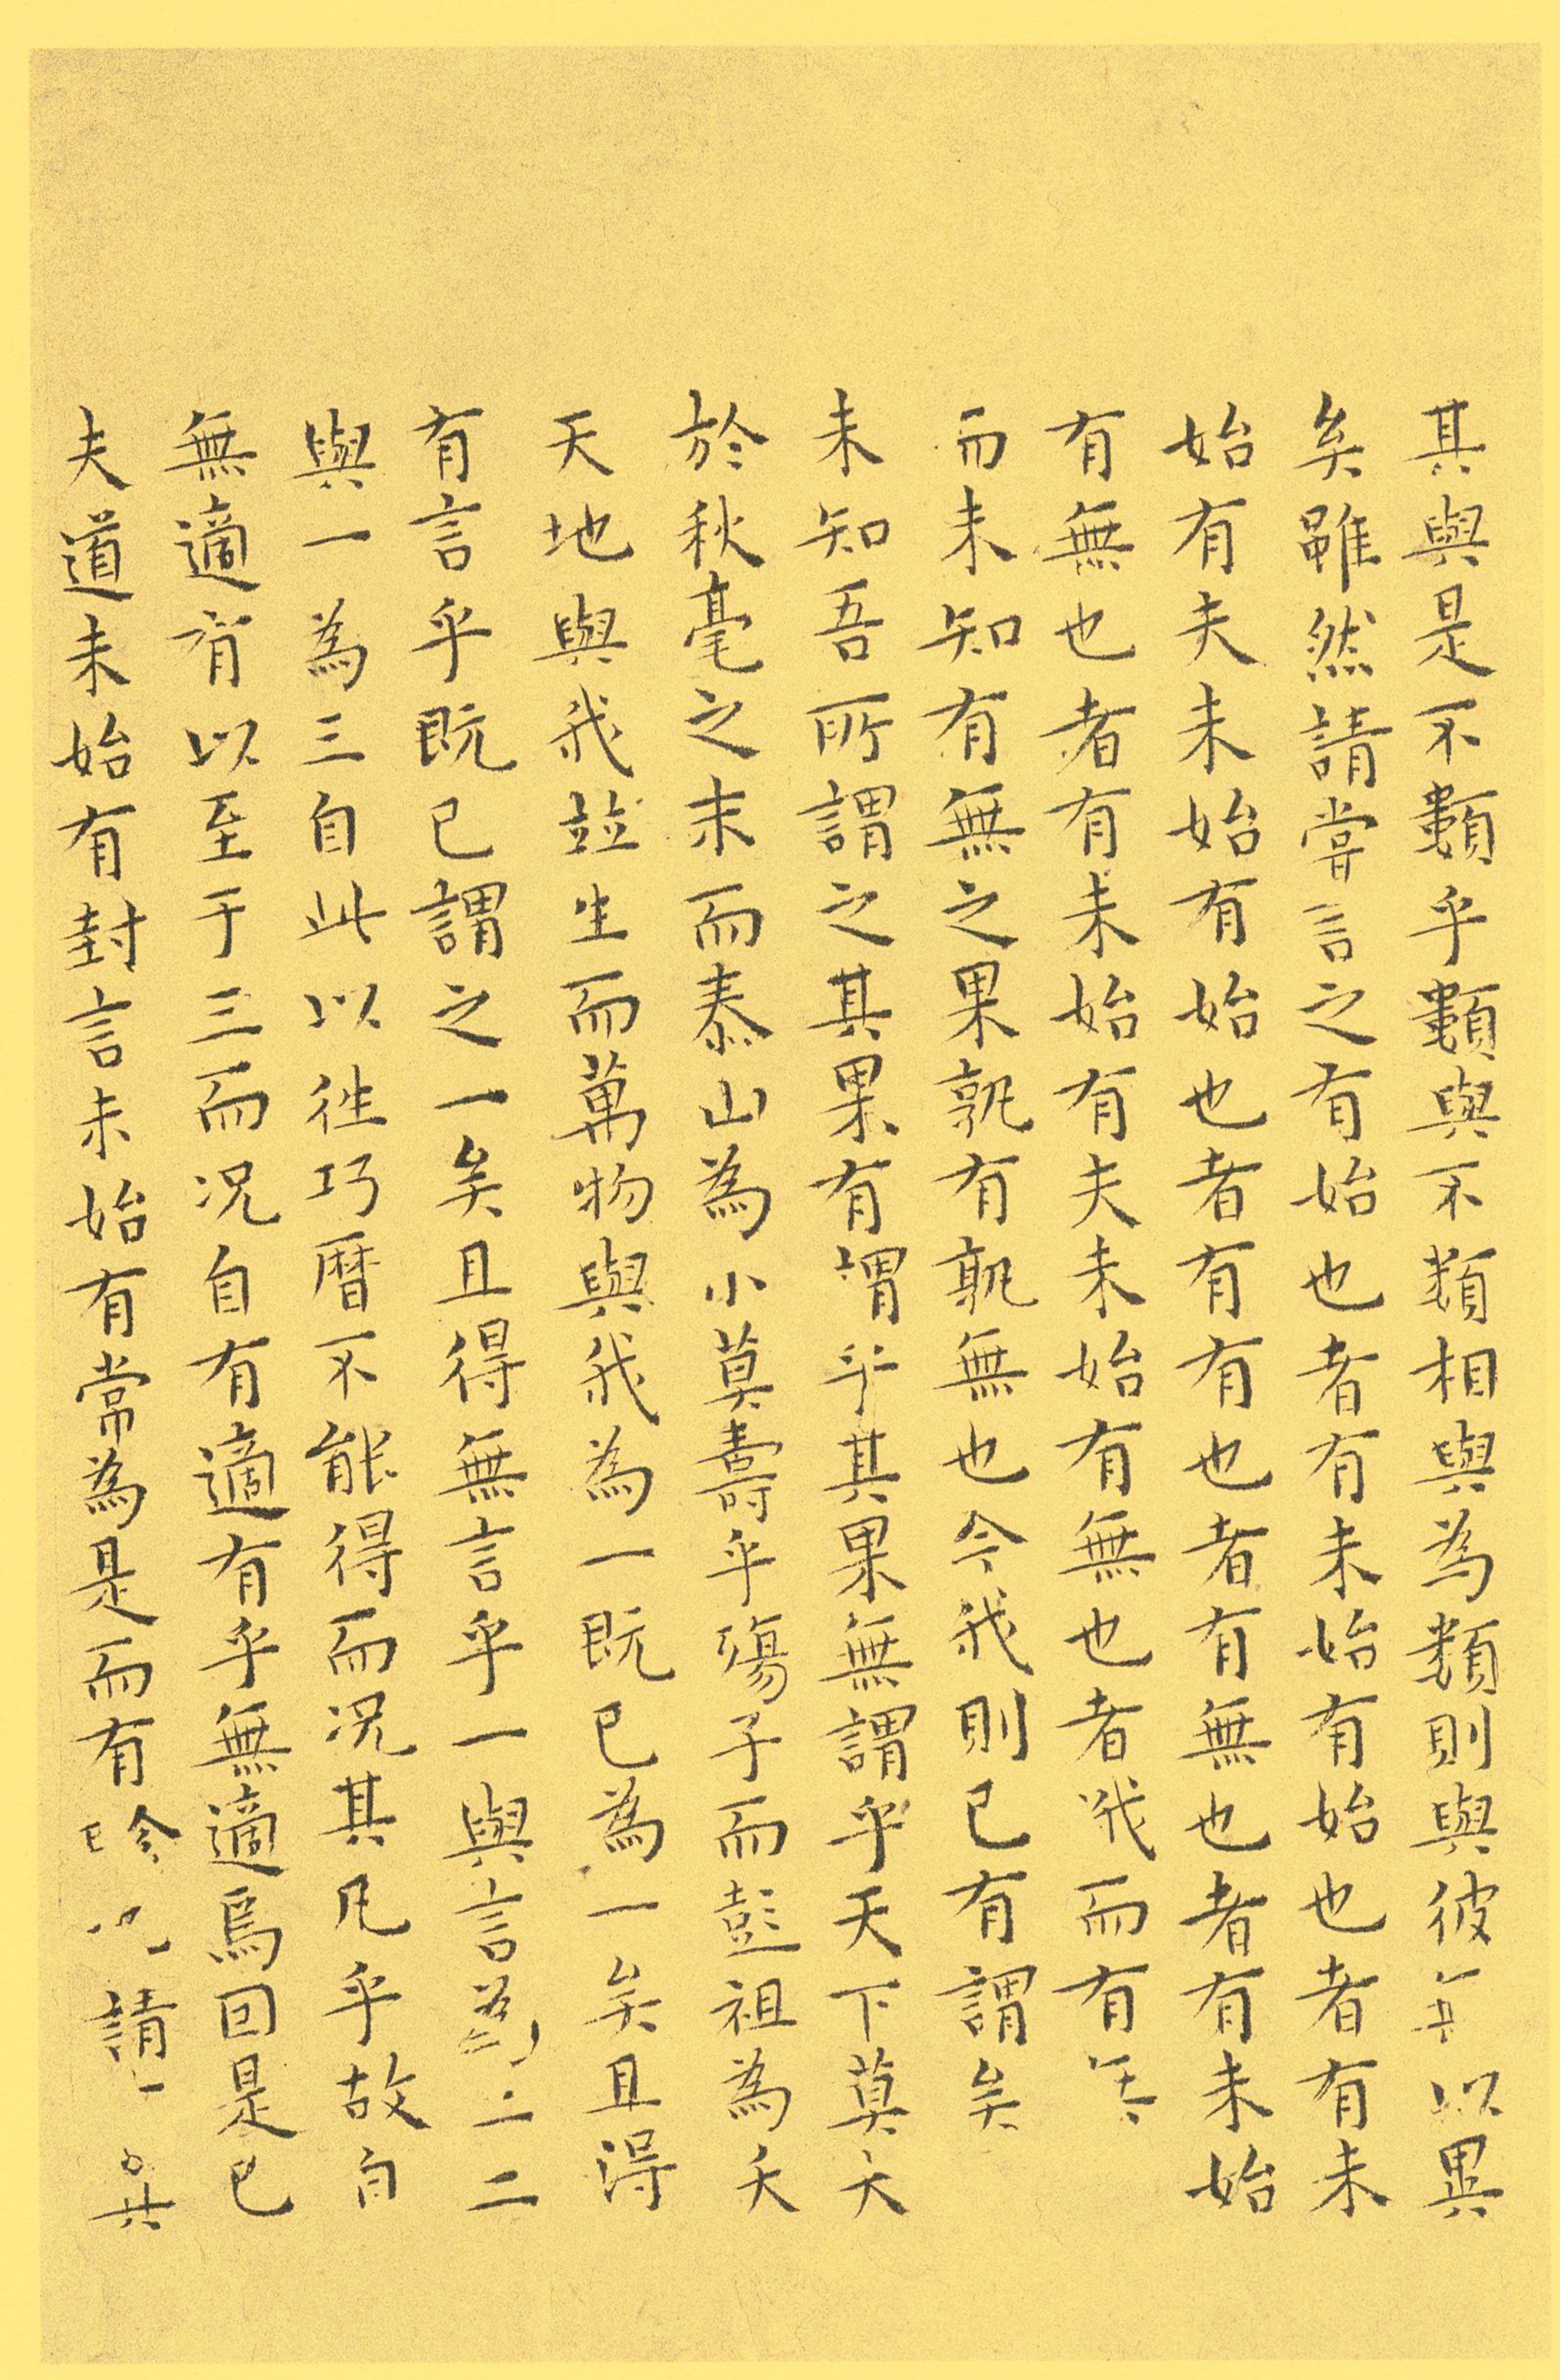 其與是不類乎類與不類相與為類則與彼無以異
矣雖然請嘗言之有始也者有未始有始也者有未
始有夫未始有始也者有有也者有無也者有未始
有無也者有未始有夫未始有無也者我而有
而未知有無之果孰有孰無也今我則已有謂矣
未知吾所謂之其果有謂乎其果無謂乎天下莫大
於秋毫之末而泰山為小莫壽乎殤子而彭祖為夭
天地與我並生而萬物與我為一既已為一矣且得
有言乎既已謂之一矣且得無言乎一與言為二二
與一為三自此以往巧曆不能得而況其凡乎故自
無適有以至于三而況自有適有乎無適焉因是已
夫道未始有封言未始有常為是而有畛也請言其